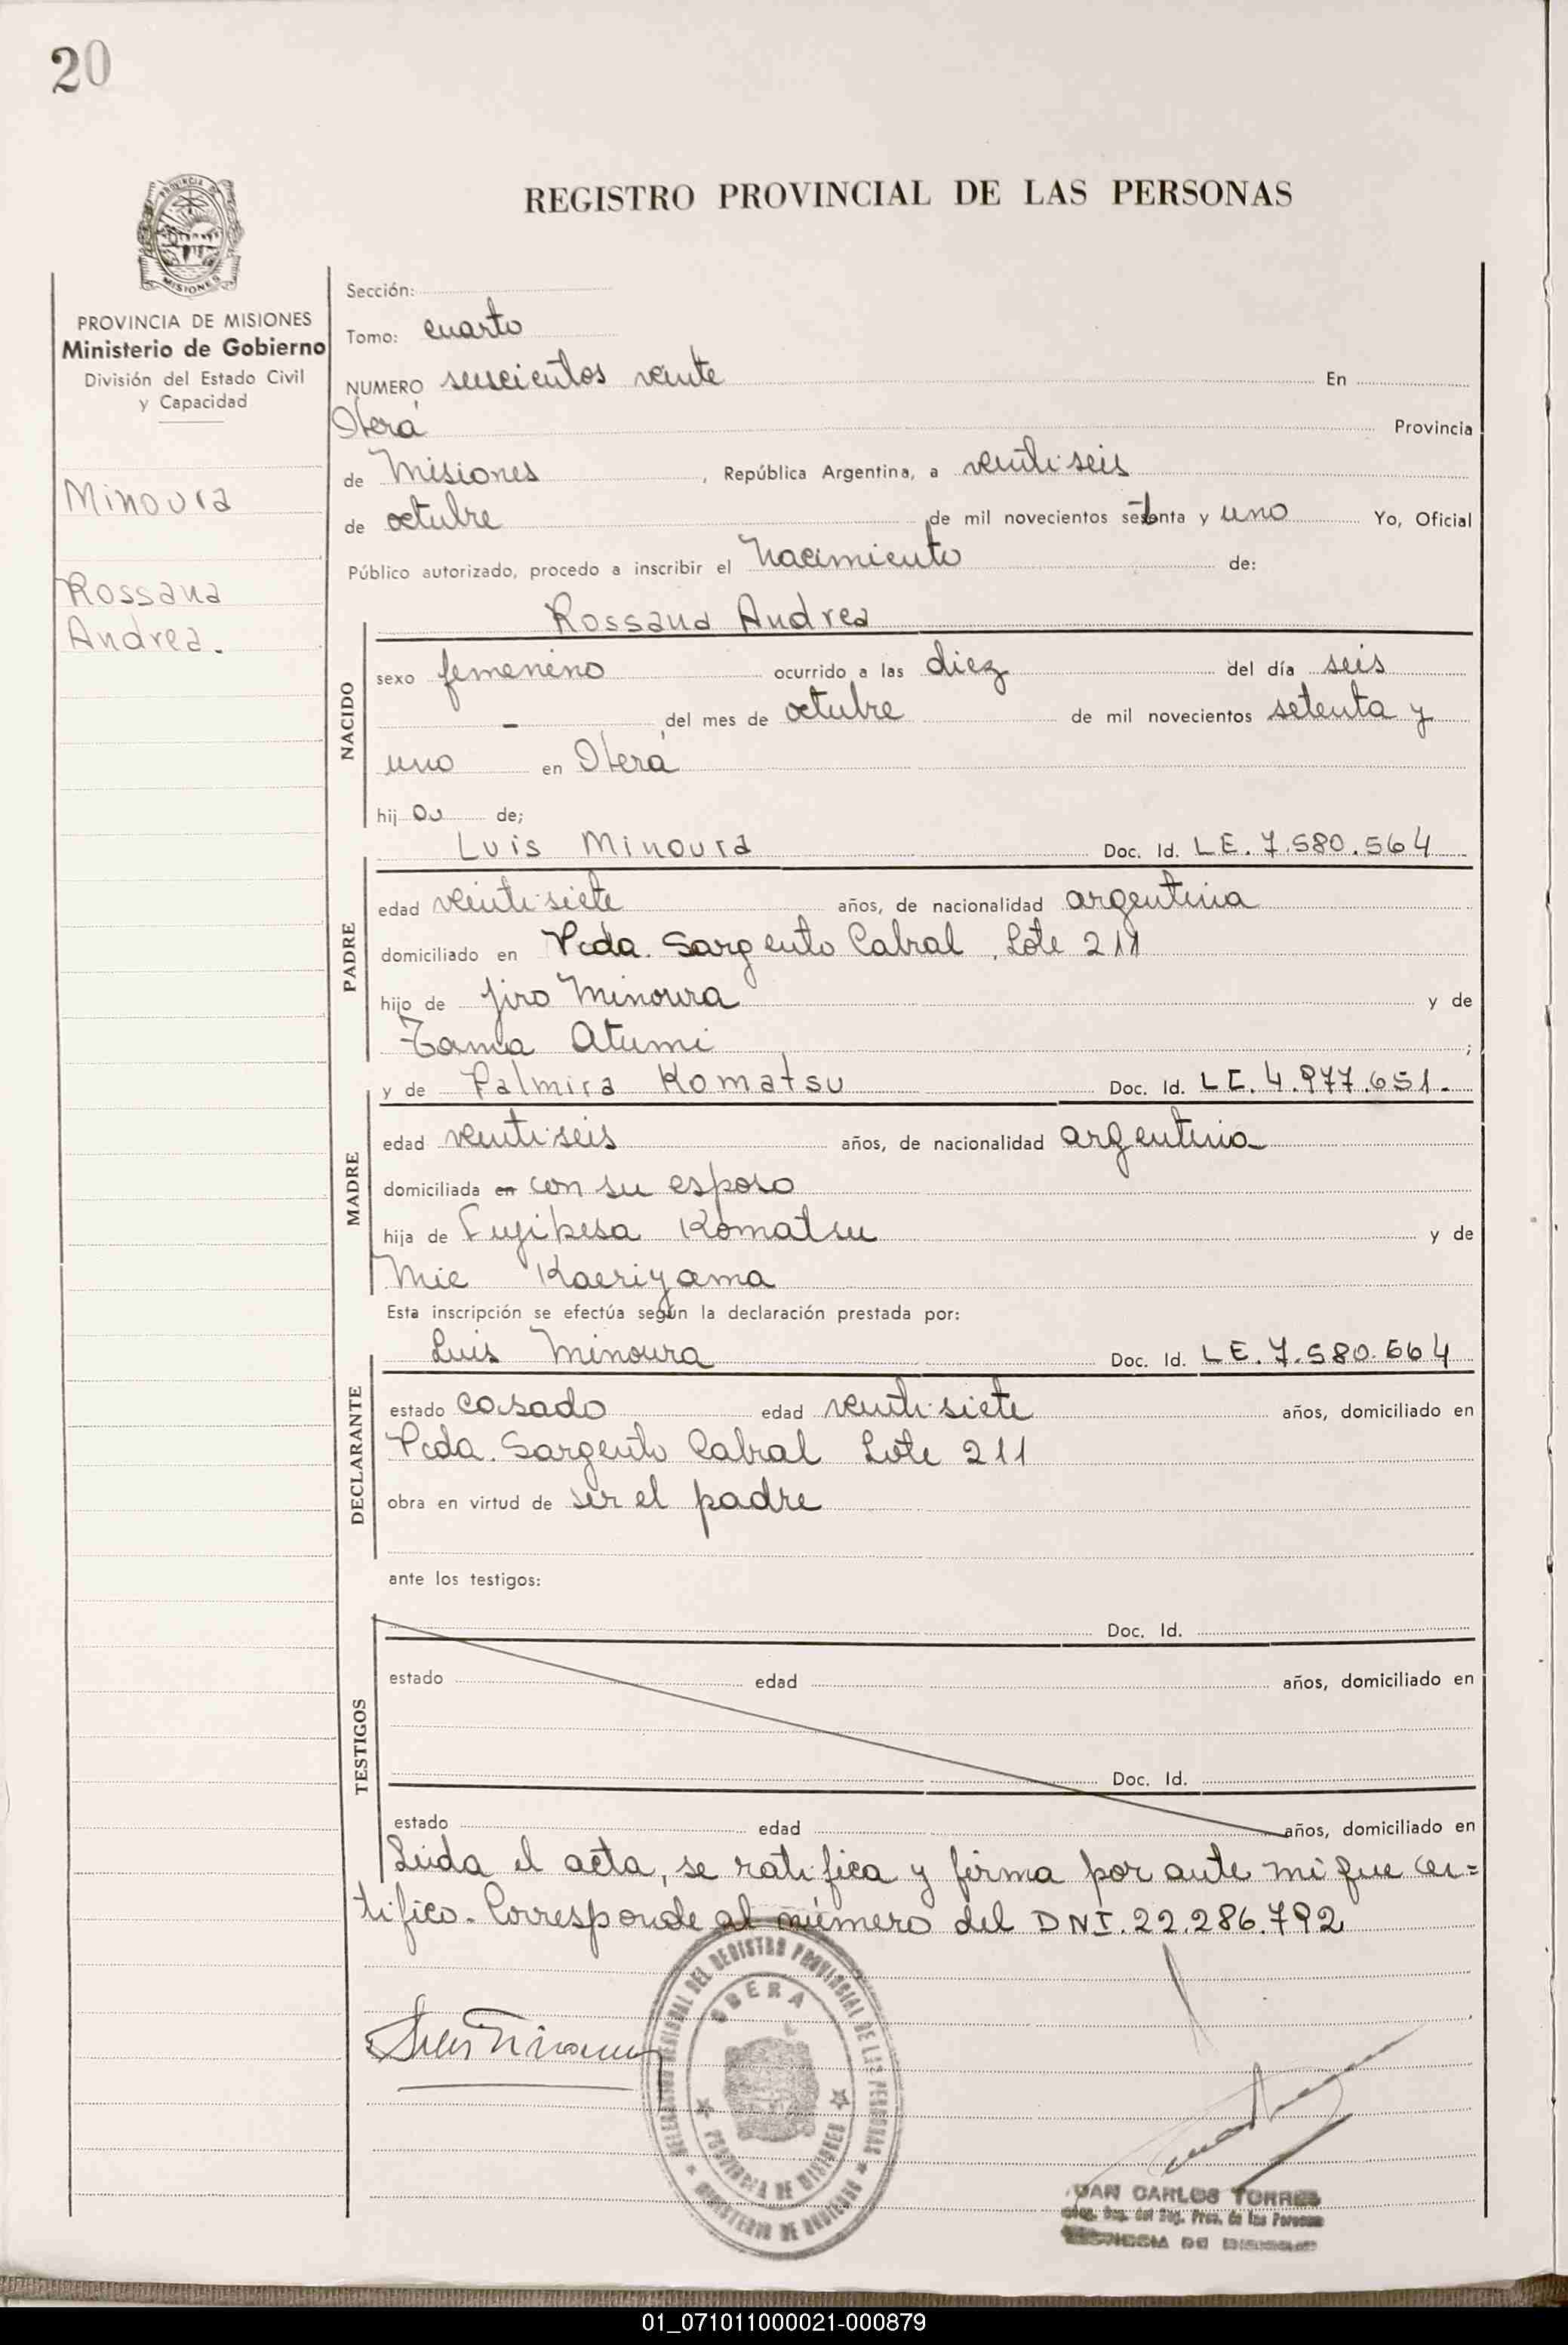 20
REGISTRO PROVINCIAL DE LAS PERSONAS
MISIONES
PROVINCIA DE MISIONES
Ministerio de Gobierno
División del Estado Civil
y Capacidad
Minoura
Rossana
Andrea.
Sección:
Tomo: cuarto
NUMERO seiscientos veinte En
Oberá Provincia
de Misiones, República Argentina, a veintiseis
de octubre de mil novecientos setenta y uno Yo, Oficial
Público autorizado, procedo a inscribir el Nacimiento de:
Rossana Andrea
NACIDO
sexo femenino ocurrido a las diez del día seis
- del mes de octubre de mil novecientos setenta y
uno en Oberá
hija de;
Luis Minoura Doc. Id. L E. 7.580.564
PADRE
edad veintisiete años, de nacionalidad argentina
domiciliado en Pcda. Sargento Cabral, Lote 211
hijo de Jiro Minoura y de
Tama Atumi ;
y de Palmira Komatsu Doc. Id. L C. 4.977.651.
MADRE
edad veintiseis años, de nacionalidad argentina
domiciliada en con su esposo
hija de Komatsu y de
Mie Kaeriyama
Esta inscripción se efectúa según la declaración prestada por:
Luis Minoura Doc. Id. L E. 7.580.564
DECLARANTE
estado casado edad veintisiete años, domiciliado en
Pcda. Sargento Cabral Lote 211
obra en virtud de ser el padre
ante los testigos:
TESTIGOS
Doc. Id.
estado edad años, domiciliado en
Doc. Id.
estado edad años, domiciliado en
Leida el acta, se ratifica y firma por ante mi que cer=
tifico. Corresponde al número del DNI. 22.286.792
REGIONAL DEL REGISTRO PROVINCIAL DE LAS PERSONAS
OBERA
PROVINCIA DE MISIONES
MINISTERIO DE GOBIERNO
JUAN CARLOS TORRES
del Reg. Prov. de las Personas
PROVINCIA DE MISIONES
01_071011000021-000879